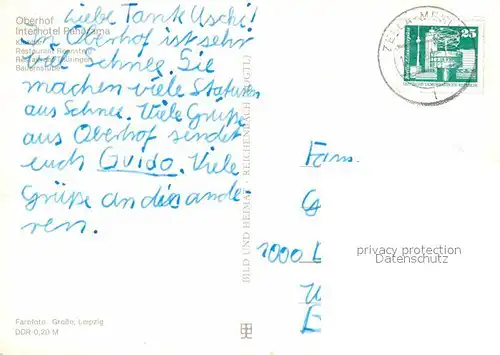 Oberhof
Interhotel Panorama
Restaurant
Bauernstube
Liebe Tante Uschi!
In Oberhof ist sehr
viel Schnee. Sie
machen viele Statuen
aus Schnee. Viele Grüße
aus Oberhof sendet
euch Guido. Viele
Grüße an die ande-
ren.
Farbfoto Große, Leipzig
DDR 0,20 M
BILD UND HEIMAT REICHENBACH (VOGTL)
ZELLA-MEHLIS
25
Fam.
1000
privacy protection
Datenschutz